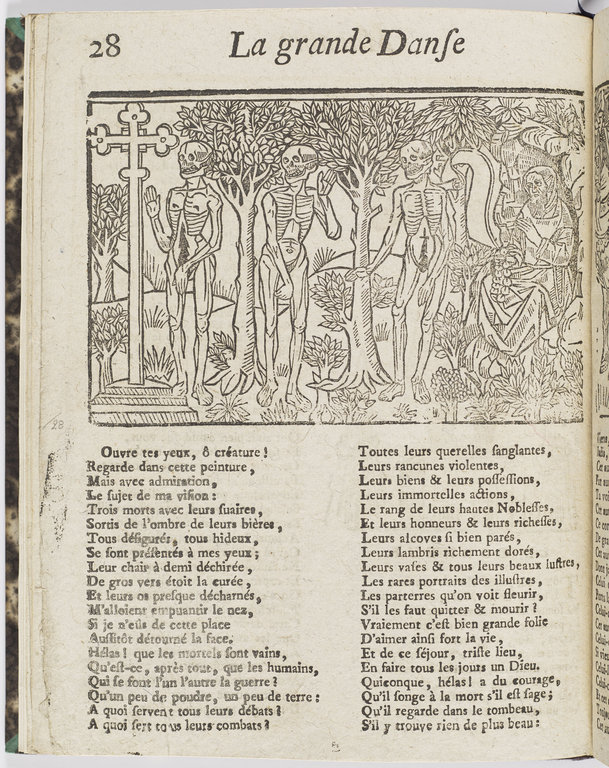 28
La grande Danſe
Ouvre tes yeux, ô créature !
Regarde dans cette peinture,
Mais avec admiration,
Le ſujet de ma viſion :
Trois morts avec leurs ſuaires,
Sortis de l'ombre de leurs bières,
Tous défigurés, tous hideux,
Se ſont préſentés à mes yeux ;
Leur chair à demi déchirée,
De gros vers étoit la curée,
Et leurs os preſque décharnés,
M'alloient empuantir le nez,
Si je n'eûs de cette place
Auſſitôt détourné la face.
Hélas ! que les mortels ſont vains,
Qu'eſt-ce, après tout, que les humains,
Qui ſe font l'un l'autre la guerre ?
Qu'un peu de poudre, un peu de terre :
A quoi ſervent tous leurs débats ?
A quoi ſert tous leurs combats ?
Toutes leurs querelles ſanglantes,
Leurs rancunes violentes,
Leurs biens & leurs poſſeſſions,
Leurs immortelles actions,
Le rang de leurs hautes Nobleſſes,
Et leurs honneurs & leurs richeſſes,
Leurs alcoves ſi bien parés,
Leurs lambris richement dorés,
Leurs vaſes & tous leurs beaux luſtres,
Les rares portraits des illuſtres,
Les parterres qu'on voit fleurir,
S'il les faut quitter & mourir ?
Vraiement c'eſt bien grande folie
D'aimer ainſi fort la vie,
Et de ce ſéjour, triſte lieu,
En faire tous les jours un Dieu.
Quiconque, hélas ! a du courage,
Qu'il ſonge à la mort s'il eſt ſage ;
Qu'il regarde dans le tombeau,
S'il y trouve rien de plus beau :